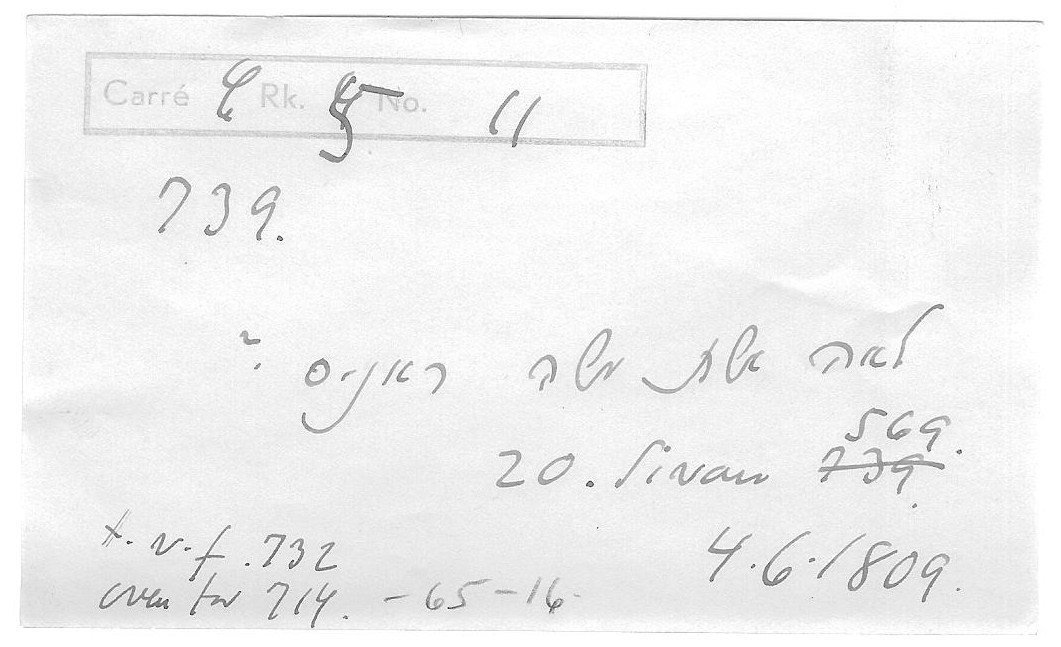 Carré C Rk. 5 No. 11
739.
לאה אשת משה
569.
20. Sivan 739
t. v. f. 732
4.6.1809.
over for 714. -65-16-